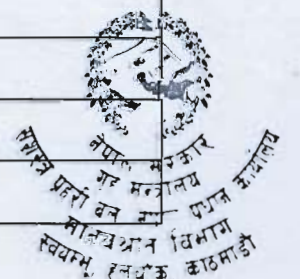 नेपाल सरकार
गृह मन्त्रालय
सशस्त्र प्रहरी बल प्रधान कार्यालय
मानवश्रोत विभाग
स्वयम्भू हलचोक काठमाडौं